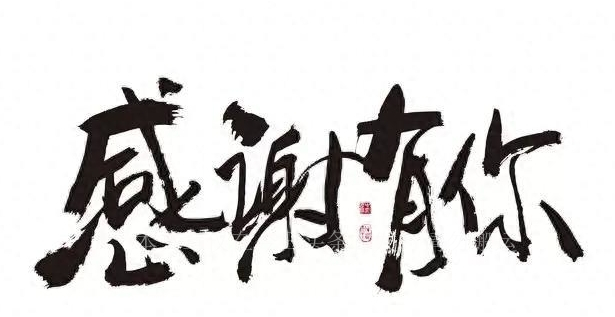 感谢有你